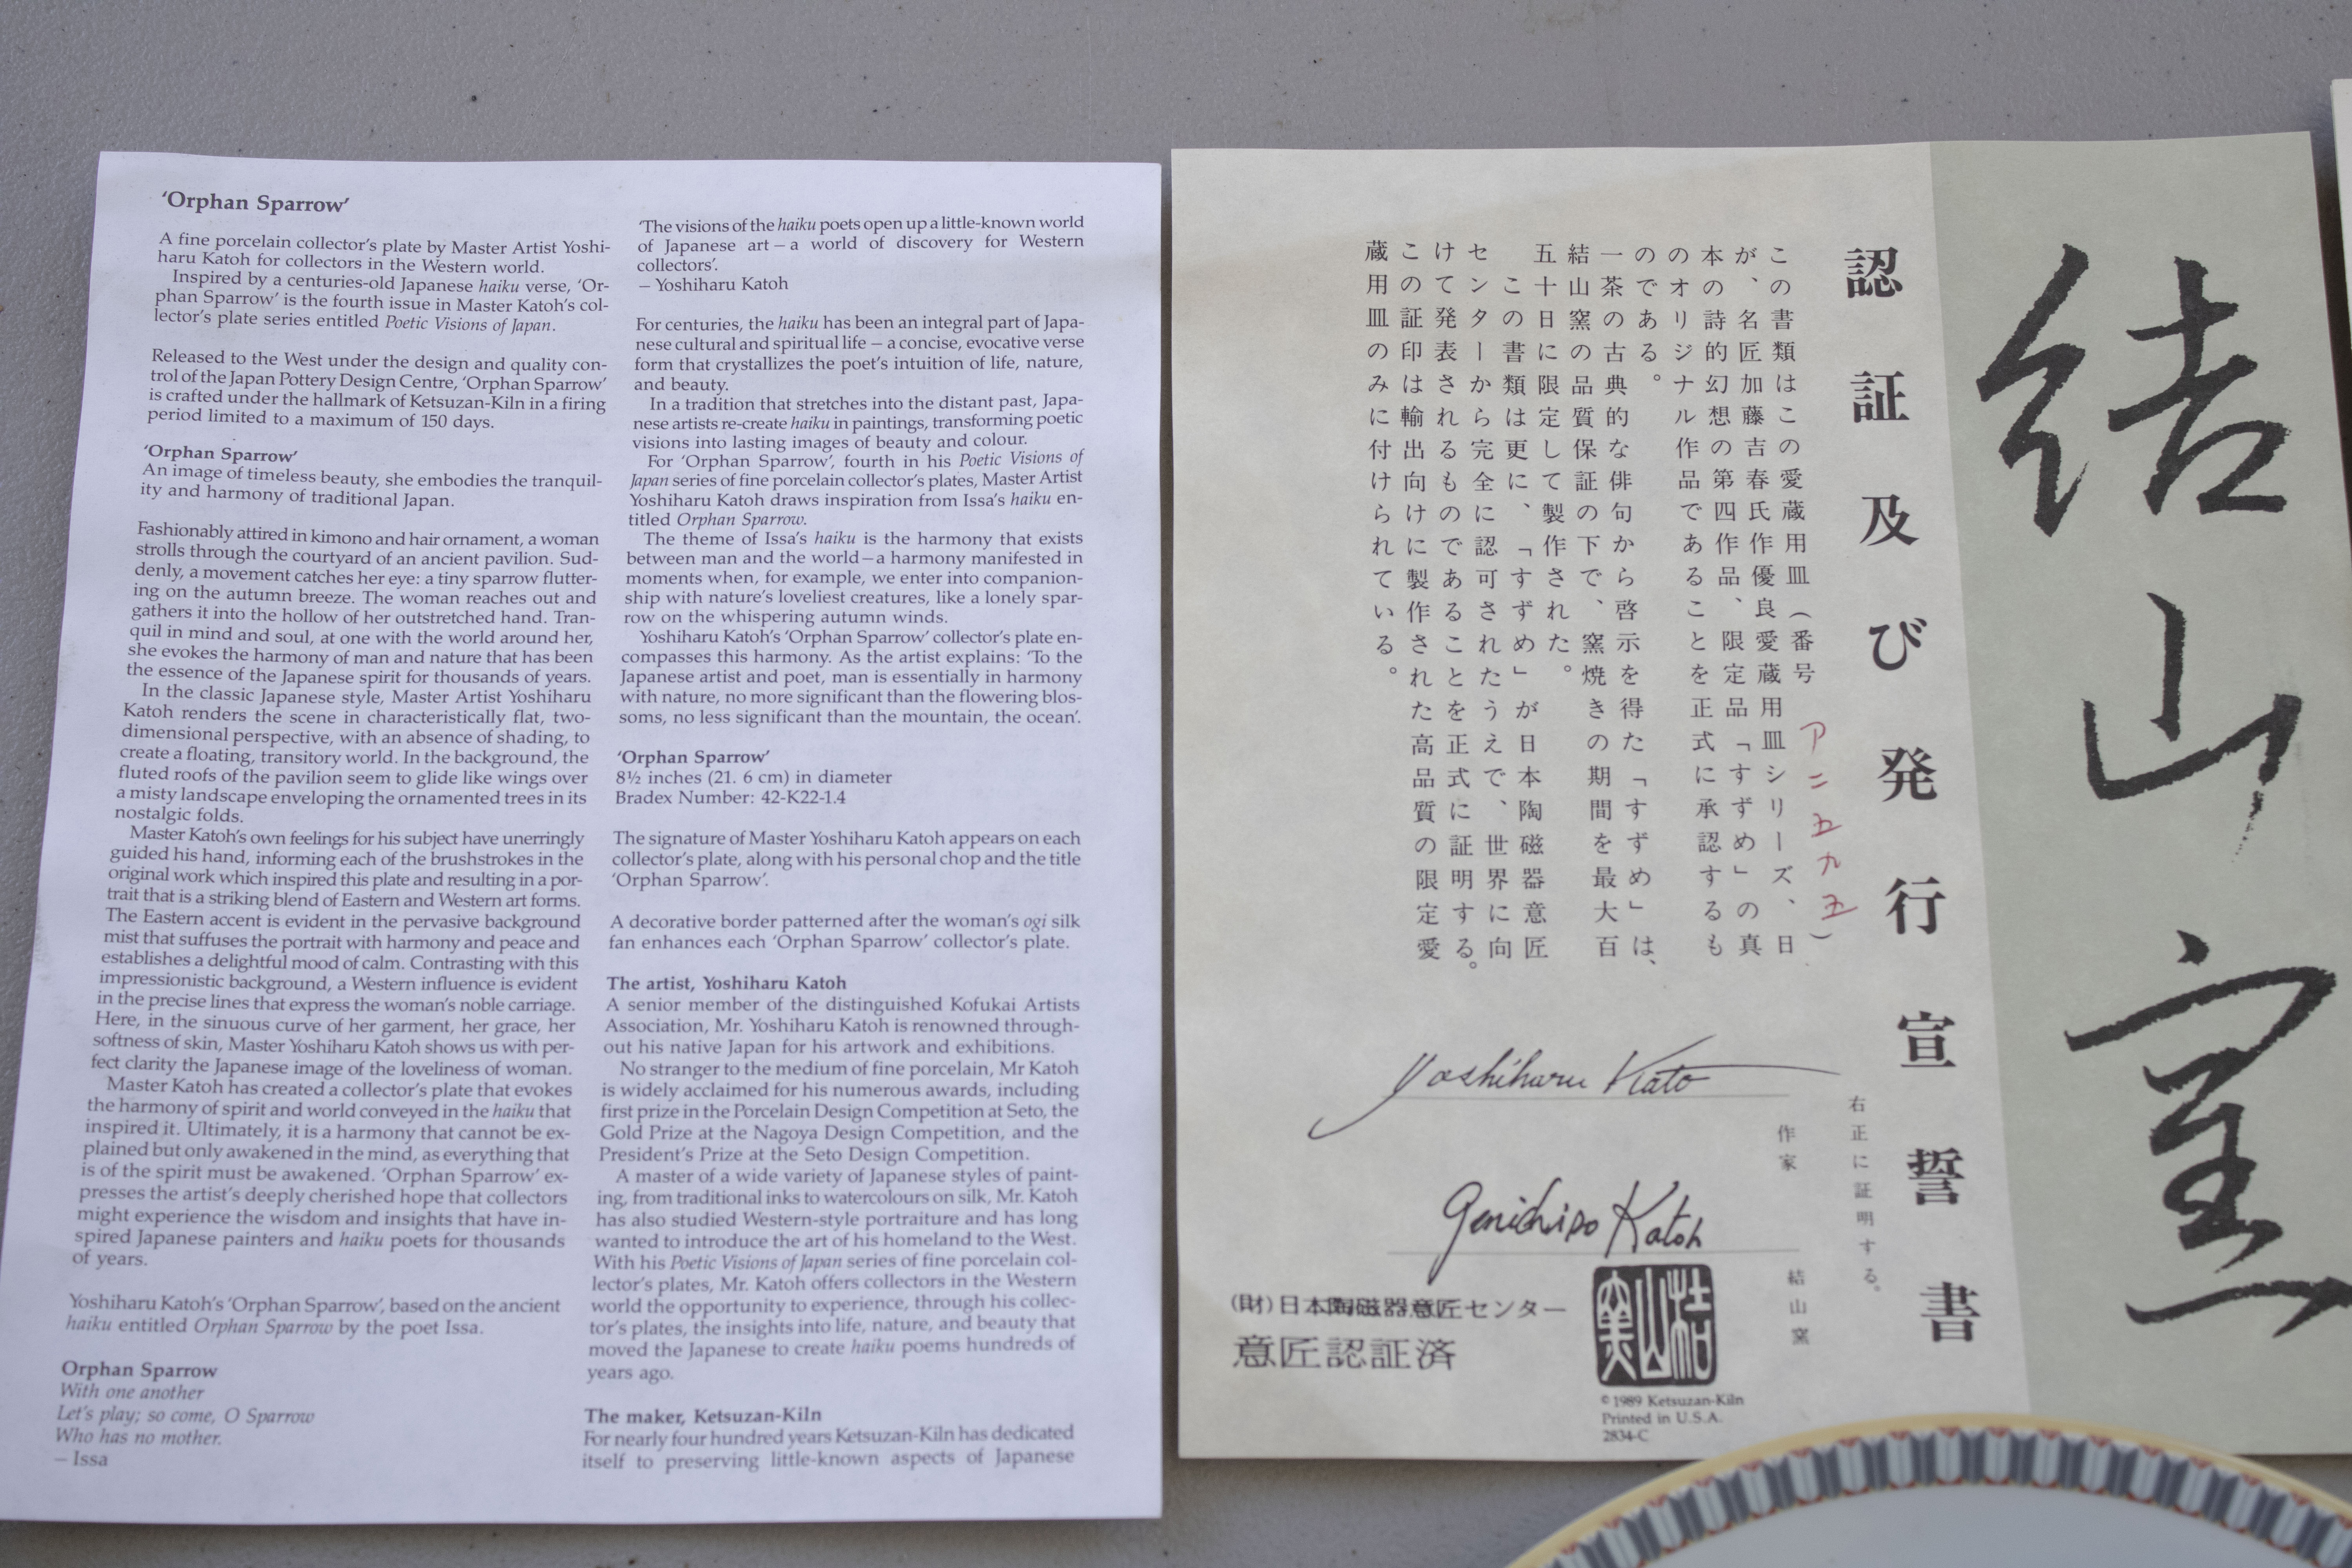 ‘Orphan Sparrow’
A fine porcelain collector’s plate by Master Artist Yoshi-
haru Katoh for collectors in the Western world.
Inspired by a centuries-old Japanese haiku verse, ‘Or-
phan Sparrow’ is the fourth issue in Master Katoh’s col-
lector’s plate series entitled Poetic Visions of Japan.
Released to the West under the design and quality con-
trol of the Japan Pottery Design Centre, ‘Orphan Sparrow’
is crafted under the hallmark of Ketsuzan-Kiln in a firing
period limited to a maximum of 150 days.
‘Orphan Sparrow’
An image of timeless beauty, she embodies the tranquil-
ity and harmony of traditional Japan.
Fashionably attired in kimono and hair ornament, a woman
strolls through the courtyard of an ancient pavilion. Sud-
denly, a movement catches her eye: a tiny sparrow flutter-
ing on the autumn breeze. The woman reaches out and
gathers it into the hollow of her outstretched hand. Tran-
quil in mind and soul, at one with the world around her,
she evokes the harmony of man and nature that has been
the essence of the Japanese spirit for thousands of years.
In the classic Japanese style, Master Artist Yoshiharu
Katoh renders the scene in characteristically flat, two-
dimensional perspective, with an absence of shading, to
create a floating, transitory world. In the background, the
fluted roofs of the pavilion seem to glide like wings over
a misty landscape enveloping the ornamented trees in its
nostalgic folds.
Master Katoh’s own feelings for his subject have unerringly
guided his hand, informing each of the brushstrokes in the
original work which inspired this plate and resulting in a por-
trait that is a striking blend of Eastern and Western art forms.
The Eastern accent is evident in the pervasive background
mist that suffuses the portrait with harmony and peace and
establishes a delightful mood of calm. Contrasting with this
impressionistic background, a Western influence is evident
in the precise lines that express the woman’s noble carriage.
Here, in the sinuous curve of her garment, her grace, her
softness of skin, Master Yoshiharu Katoh shows us with per-
fect clarity the Japanese image of the loveliness of woman.
Master Katoh has created a collector’s plate that evokes
the harmony of spirit and world conveyed in the haiku that
inspired it. Ultimately, it is a harmony that cannot be ex-
plained but only awakened in the mind, as everything that
is of the spirit must be awakened. ‘Orphan Sparrow’ ex-
presses the artist’s deeply cherished hope that collectors
might experience the wisdom and insights that have in-
spired Japanese painters and haiku poets for thousands
of years.
Yoshiharu Katoh’s ‘Orphan Sparrow’, based on the ancient
haiku entitled Orphan Sparrow by the poet Issa.
Orphan Sparrow
With one another
Let’s play; so come, O Sparrow
Who has no mother.
– Issa
‘The visions of the haiku poets open up a little-known world
of Japanese art – a world of discovery for Western
collectors’.
– Yoshiharu Katoh
For centuries, the haiku has been an integral part of Japa-
nese cultural and spiritual life – a concise, evocative verse
form that crystallizes the poet’s intuition of life, nature,
and beauty.
In a tradition that stretches into the distant past, Japa-
nese artists re-create haiku in paintings, transforming poetic
visions into lasting images of beauty and colour.
For ‘Orphan Sparrow’, fourth in his Poetic Visions of
Japan series of fine porcelain collector’s plates, Master Artist
Yoshiharu Katoh draws inspiration from Issa’s haiku en-
titled Orphan Sparrow.
The theme of Issa’s haiku is the harmony that exists
between man and the world – a harmony manifested in
moments when, for example, we enter into companion-
ship with nature’s loveliest creatures, like a lonely spar-
row on the whispering autumn winds.
Yoshiharu Katoh’s ‘Orphan Sparrow’ collector’s plate en-
compasses this harmony. As the artist explains: ‘To the
Japanese artist and poet, man is essentially in harmony
with nature, no more significant than the flowering blos-
soms, no less significant than the mountain, the ocean’.
‘Orphan Sparrow’
8½ inches (21. 6 cm) in diameter
Bradex Number: 42-K22-1.4
The signature of Master Yoshiharu Katoh appears on each
collector’s plate, along with his personal chop and the title
‘Orphan Sparrow’.
A decorative border patterned after the woman’s ogi silk
fan enhances each ‘Orphan Sparrow’ collector’s plate.
The artist, Yoshiharu Katoh
A senior member of the distinguished Kofukai Artists
Association, Mr. Yoshiharu Katoh is renowned through-
out his native Japan for his artwork and exhibitions.
No stranger to the medium of fine porcelain, Mr Katoh
is widely acclaimed for his numerous awards, including
first prize in the Porcelain Design Competition at Seto, the
Gold Prize at the Nagoya Design Competition, and the
President’s Prize at the Seto Design Competition.
A master of a wide variety of Japanese styles of paint-
ing, from traditional inks to watercolours on silk, Mr. Katoh
has also studied Western-style portraiture and has long
wanted to introduce the art of his homeland to the West.
With his Poetic Visions of Japan series of fine porcelain col-
lector’s plates, Mr. Katoh offers collectors in the Western
world the opportunity to experience, through his collec-
tor’s plates, the insights into life, nature, and beauty that
moved the Japanese to create haiku poems hundreds of
years ago.
The maker, Ketsuzan-Kiln
For nearly four hundred years Ketsuzan-Kiln has dedicated
itself to preserving little-known aspects of Japanese
結山窯
認証及び発行宣誓書
この書類はこの愛蔵用皿（番号アニ五九五）
が、名匠加藤吉春氏作優良愛蔵用皿シリーズ、日
本の詩的幻想の第四作品、限定品「すずめ」の真
のオリジナル作品であることを正式に承認するも
のである。
一茶の古典的な俳句から啓示を得た「すずめ」は、
結山窯の品質保証の下で、窯焼きの期間を最大百
五十日に限定して製作された。
この書類は更に、「すずめ」が日本陶磁器意匠
センターから完全に認可されたうえで、世界に向
けて発表されるものであることを正式に証明する。
この証印は輸出向けに製作された高品質の限定愛
蔵用皿のみに付けられている。
右正に証明する。
Yoshiharu Kato
作家
Genichiso Katoh
結山窯
(財)日本陶磁器意匠センター
意匠認証済
結山窯
© 1989 Ketsuzan-Kiln
Printed in U.S.A.
2834-C